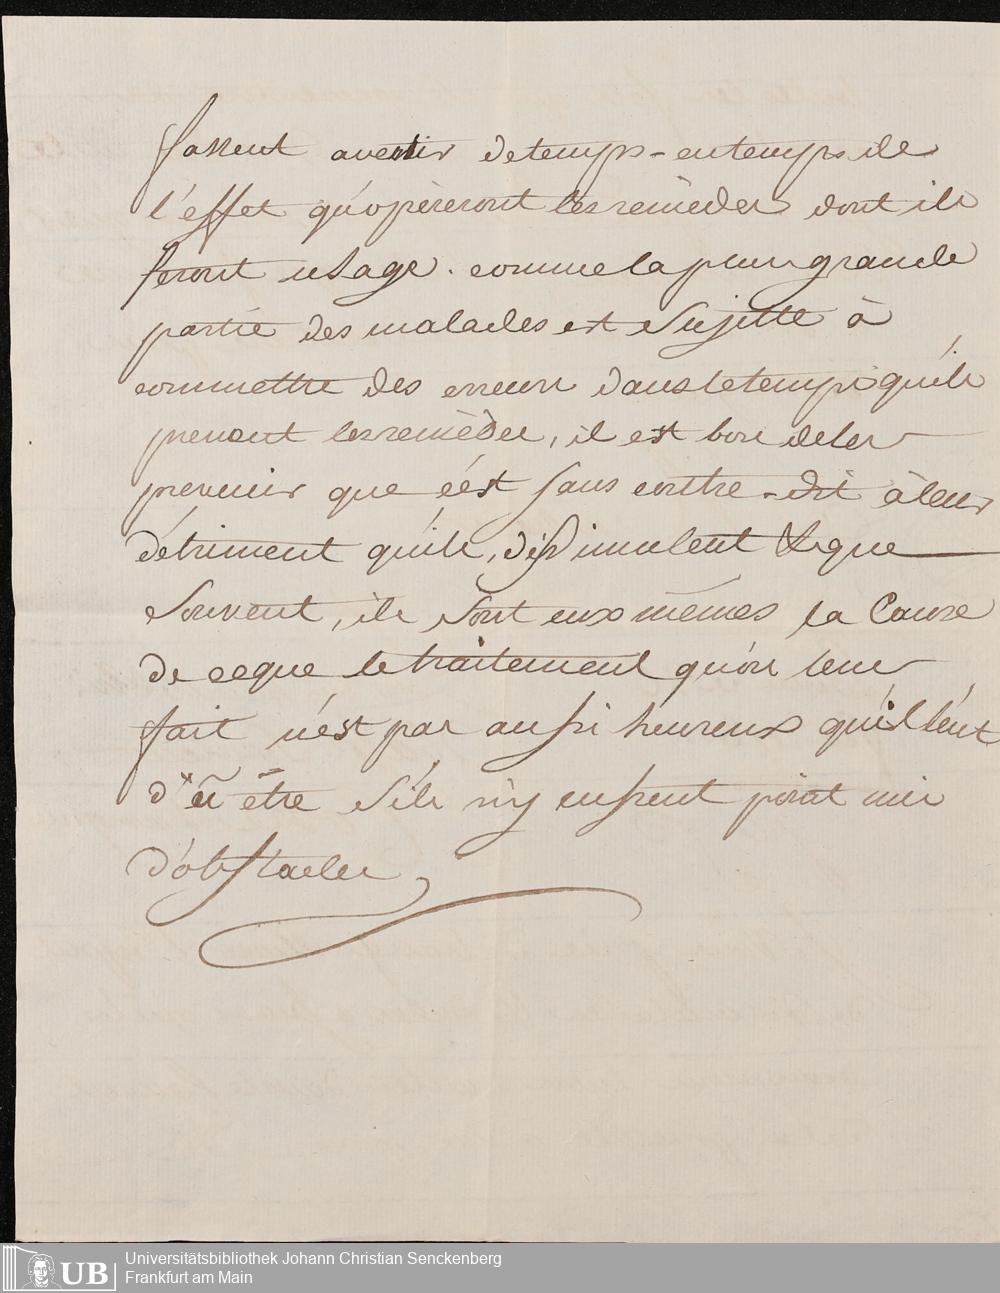 fassent avertir de temps-en temps de
l'effet qu'opèreront les remèdes dont ils
feront usage. comme la plus grande
partie des malades est sujette à
commettre des erreurs dans le temps qu'ils
prenent les remèdes, il est bon de les
prevenir que c'ést sans contre-dit à leur
détriment qu'ils dissimulent & que
souvent, ils sont eux mêmes la Cause
de ce que le traitement qu'on leur
fait n'est pas aussi heureux qu'il l'eut
dû être s'ils n'y eussent point mis
d'obstacles,
Universitätsbibliothek Johann Christian Senckenberg
Frankfurt am Main
UB